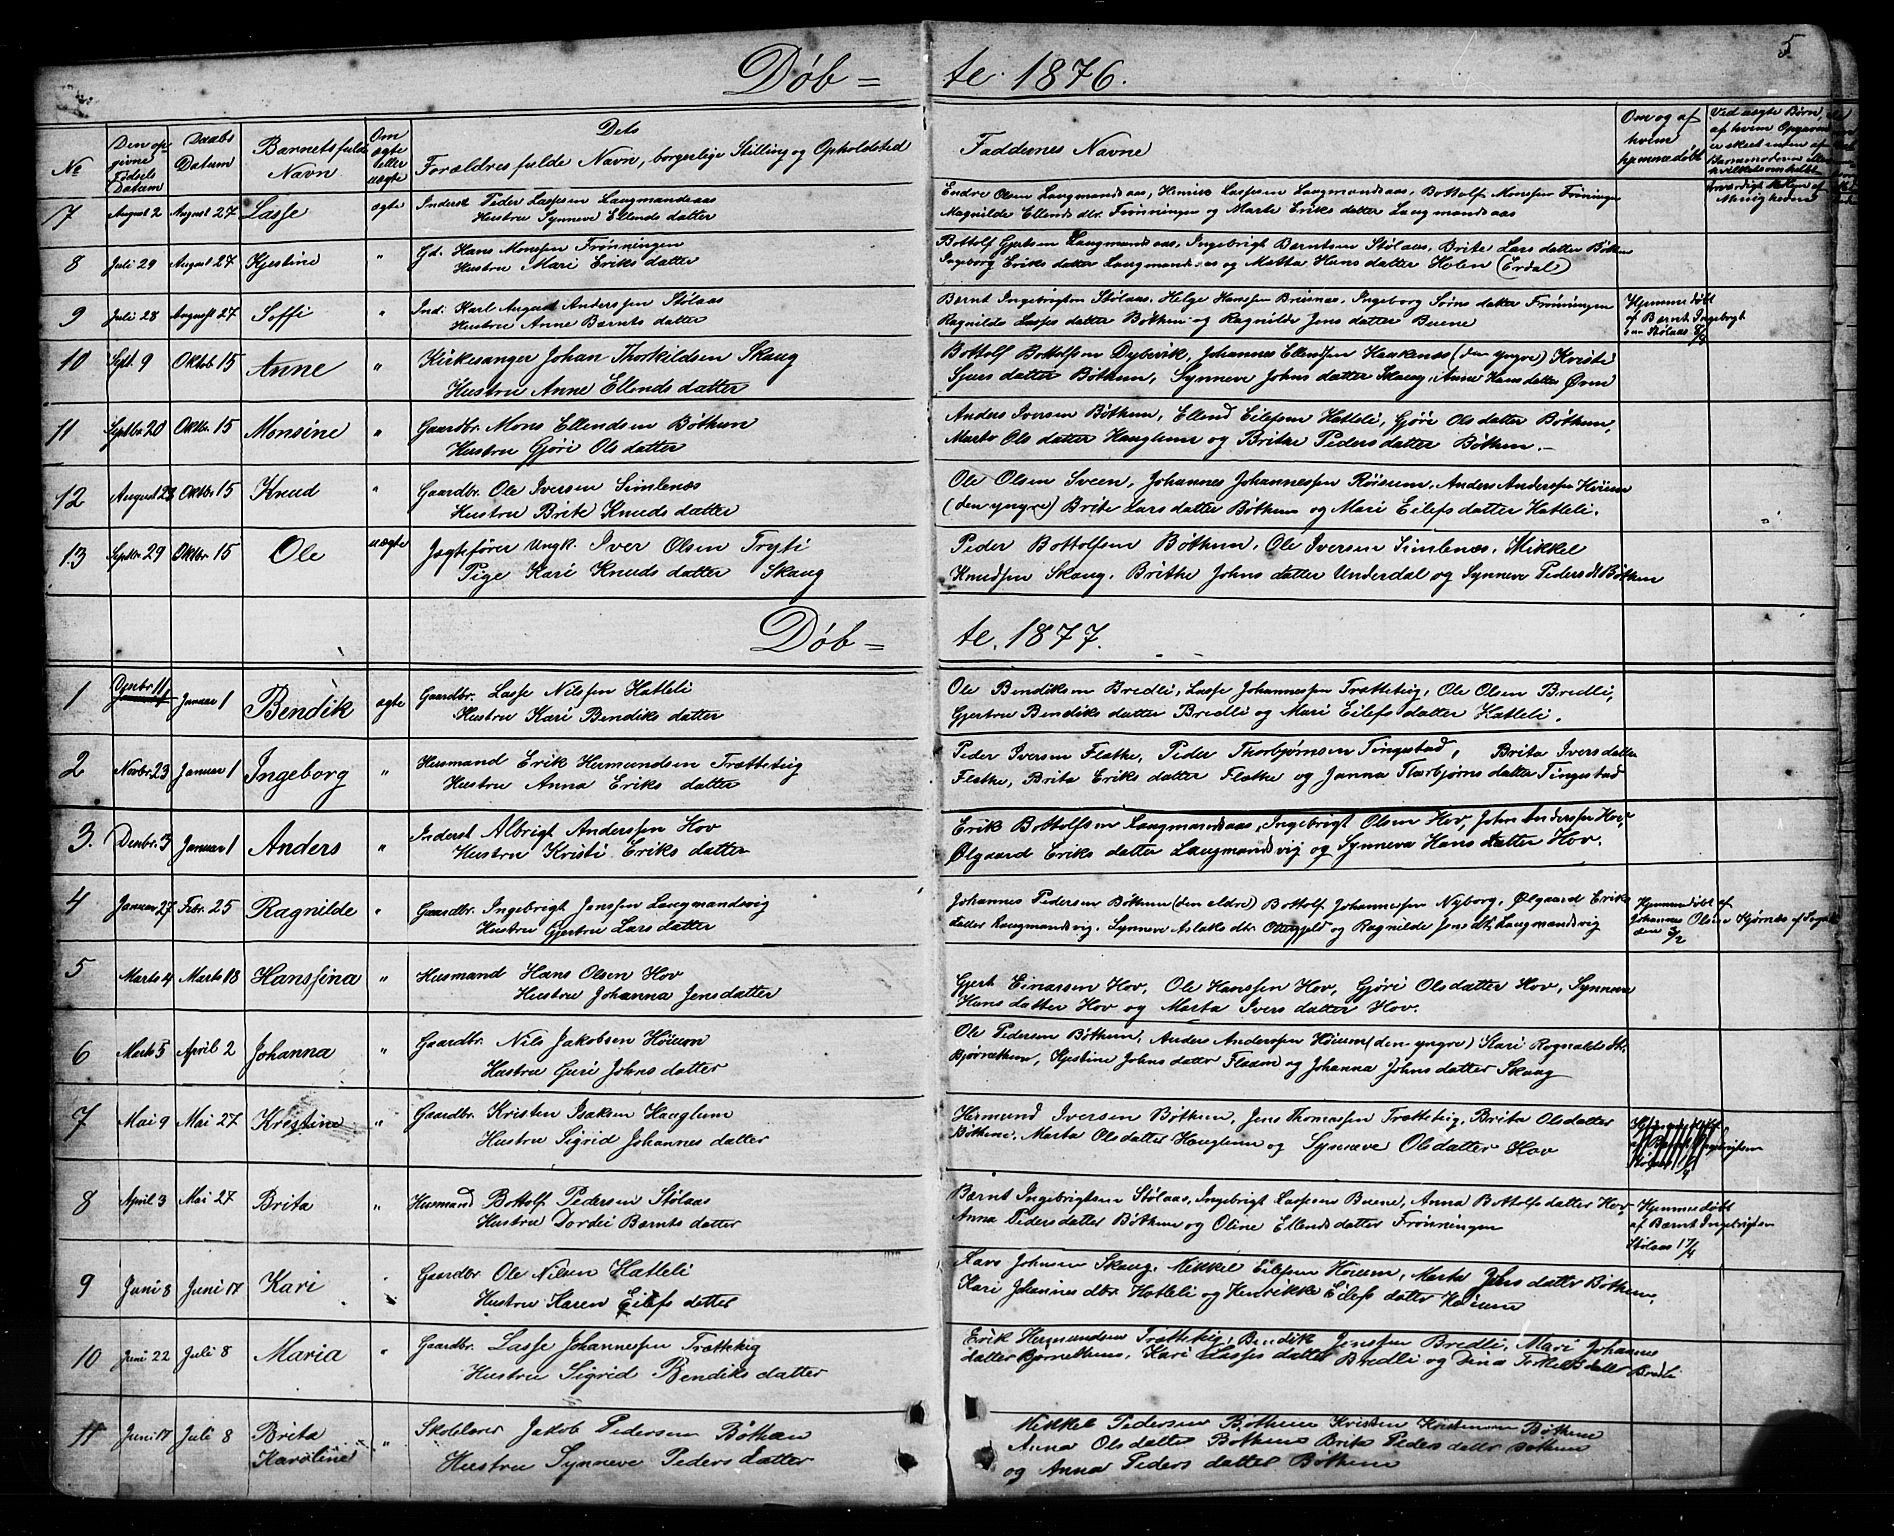 5
Døb = te. 1876.
No
Den op-
givne
Fødsels
Datum
Daabs
Datum
Barnets fulde
Navn
Om
ægte
eller
uægte
Dets
Forældres fulde Navn, borgerlige Stilling og Opholdsted
Faddernes Navne
Om og af
hvem
hjemmedøbt
Ved uægte Børn,
af hvem Opgaven
er skeet
7 August 2 August 27 Lasse ægte Inderst Peder Lassesen Laugmandsaas
Hustru Synneve Ellends datter
Endre Olsen Laugmandsaas, Henrik Lassesen Laugmandsaas, Bottolf Monssen Frønningen
Magnilde Ellends dtr. Frønningen og Marte Eriks datter Laugmandsaas
8 Juli 29 August 27 Kjestine " Gd. Hans Monssen Frønningen
Hustru Mari Eriks datter
Bottolf Gjertsen Laugmandsaas, Ingebrigt Berntsen Stølaas, Brite Lars datter Bøthun
Ingeborg Eriks datter Laugmandsaas og Matta Hans datter Holen (Erdal)
9 Juli 28 August 27 Soffi " Ind. Karl August Anderssen Stølaas
Hustru Anne Bernts datter
Bernt Ingebrigtsen Stølaas, Helge Hanssen Buenæs, Ingeborg Sørns datter Frønningen
Ragnilde Lasses datter Bøthun og Ragnilde Jens datter Buene
Hjemmedøbt
af Bernt Ingebrigt
sen Stølaas
10 Sept. 9 Oktob 15 Anne " Kirkesanger Johan Thorkildsen Skaug
Hustru Anne Ellends datter
Bottolf Bottolfsen Dybevik, Johannes Ellendsen Haukenæs (den yngre) Kristi
Sjurs datter Bøthun, Synneve Johns datter Skaug, Anne Hans datter Ørem
11 Septbr. 20 Oktbr. 15 Monsine " Gaardbr. Mons Ellendsen Bøthun
Hustru Gjøri Ols datter
Anders Iversen Bøthun, Ellend Eilefsen Hatleli, Gjøri Ols datter Bøthun,
Marta Ols datter Hauglum og Brithe Peders datter Bøthun.
12 August 28 Oktbr. 15 Knud " Gaardbr. Ole Iversen Simlenæs
Hustru Brite Knuds datter
Ole Olsen Sveen, Johannes Johannessen Røisum, Anders Anderssen Høium
(den yngre) Brite Lars datter Bøthun og Mari Eilefs datter Hatleli.
13 Septbr. 29 Oktbr. 15 Ole uægte Jægtefører Ungk. Iver Olsen Tryti
Pige Kari Knuds datter Skaug
Peder Bottolfsen Bøthun, Ole Iversen Simlenæs, Mikkel
Knudsen Skaug, Brithe Johns datter Underdal og Synneve Peders dt Bøthun
Døb = te. 1877.
1 Dcbr. 11 Januar 1 Bendik ægte Gaardbr. Lasse Nilssen Hatleli
Hustru Kari Bendiks datter
Ole Bendiksen Bredli, Lasse Johannessen Trætteteig, Ole Olsen Bredli,
Gjertru Bendiks datter Bredli og Mari Eilefs datter Hatleli.
2 Novbr. 23 Januar 1 Ingeborg " Husmand Erik Hermundsen Trætteteig
Hustru Anna Eriks datter
Peder Iversen Flathe, Peder Thorbjørnsen Tingestad, Brita Ivers datter
Flathe, Brita Eriks datter Flathe og Janna Thorbjørns datter Tingestad
3. Decbr. 3 Januar 1 Anders " Inderst Albrigt Anderssen Hov
Hustru Kristi Eriks datter
Erik Bottolfsen Laugmandsaas, Ingebrigt Olsen Hov, John Anderssen Hov,
Ølgaard Eriks datter Laugmandsvig og Synneva Hans datter Hov.
4 Januar 27 Febr. 25 Ragnilde " Gaardbr. Ingebrigt Jenssen Laugmandsvig
Hustru Gjertru Lars datter
Johannes Pedersen Bøthun (den eldre) Bottolf Johannessen Nyborg, Ølgaard Eriks
datter Laugmandsvig, Synneve Aslaks dtr. Ottegjeld og Ragnilde Jens dt. Laugmandsvig
Hjemmedøbt af
Johannes Olsen Hjørnes af Sogndal
den 3/2
5 Marts 4 Marts 18 Hanssina " Husmand Hans Olsen Hov
Hustru Johanna Jensdatter
Gjert Einarsen Hov, Ole Hanssen Hov, Gjøri Olsdatter Hov, Synneve
Hans datter Hov og Marta Ivers datter Hov.
6 Marts 5 April 2 Johanna " Gaardbr. Nils Jakobsen Høium
Hustru Guri Johns datter
Ole Pedersen Bøthun, Anders Anderssen Høium (den yngre) Kari Rognalds dt.
Bjørnethun, Kjestine Johns datter Flaam og Johanna Johns datter Skaug
7 Mai 9 Mai 27 Krestine " Gaardbr. Kristen Isaksen Hauglum
Hustru Sigrid Johannes datter
Hermund Iversen Bøthun, Jens Thomassen Trætteteig, Brita Olsdatter
Bøthun, Marta Olsdatter Hauglum og Synneve Olsdatter Hov
8 April 3 Mai 27 Brita " Husmand Bottolf Pedersen Stølaas
Hustru Dordei Bernts datter
Bernt Ingebrigtsen Stølaas, Ingebrigt Lassesen Buene, Anna Bottolfsdatter Hov,
Anna Peders datter Bøthun og Oline Ellends datter Frønningen
Hjemmedøbt
af Bernt Ingebrigtsen
Stølaas 17/4
9 Juni 8 Juni 17 Kari " Gaardbr Ole Nilsen Hatleli
Hustru Karen Eilefs datter
Lars Johnsen Skaug, Mikkel Eilefsen Høium, Marta Johs datter Bøthun,
Kari Johannes dtr. Hatleli og Henrikke Eilefs datter Høium
10 Juni 22 Juli 8 Maria " Gaardbr. Lasse Johannessen Trætteteig
Hustru Sigrid Bendiks datter
Erik Hermundsen Trætteteig, Bendik Jenssen Bredli, Mari Johannes
datter Bjørnethun, Kari Lasses datter Bredli og Dina Torkels datter Bredli
11 Juni 17 Juli 8 Brita
Karoline " Skolelærer Jakob Pedersen Bøthun
Hustru Synneve Peders datter
Mikkel Pedersen Bøthun Kristen Kristensen Bøthun
Anna Olsdatter Bøthun Brita Peders datter Bøthun
og Anna Peders datter Bøthun